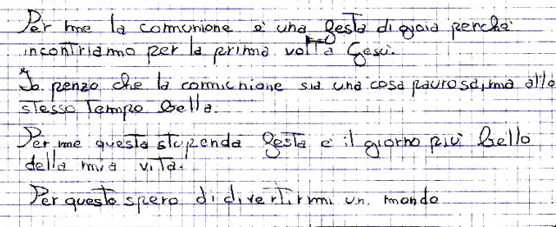 Per me la comunione è una festa di gioia perchè
incontriamo per la prima volta Gesù.
Io penzo che la comunione sia una cosa paurosa, ma allo
stesso tempo bella.
Per me questa stupenda festa è il giorno più bello
della mia vita.
Per questo spero di divertirmi un mondo